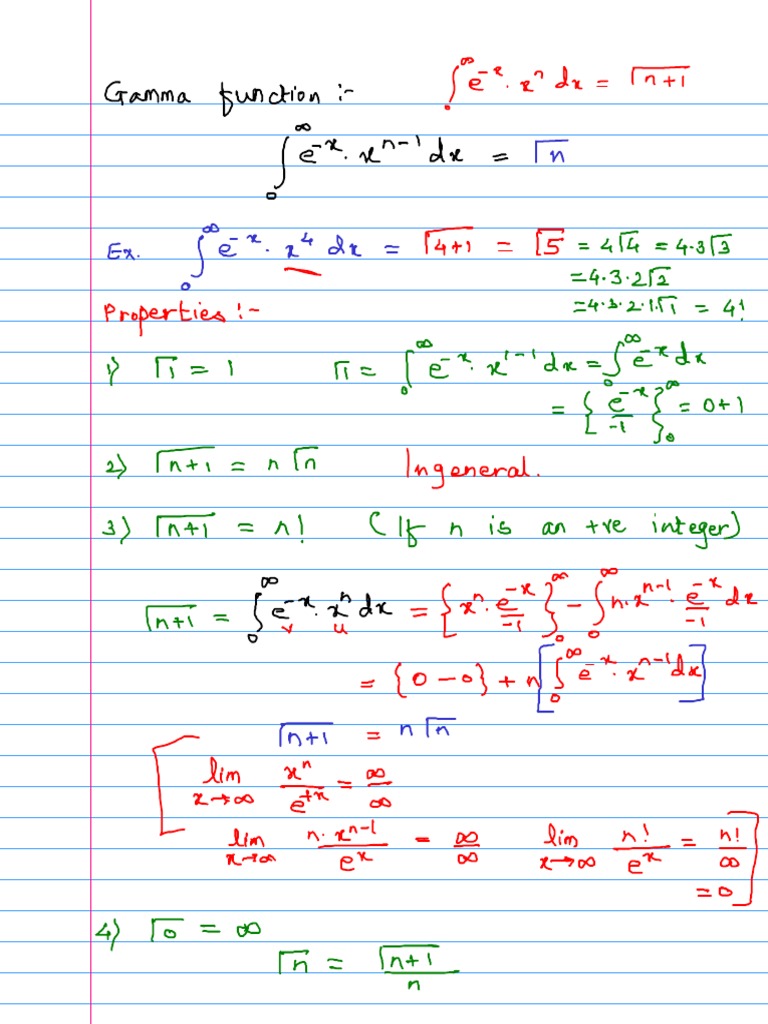 Gamma function :- ∫₀^∞ e^{-x} · x^n dx = Γn+1
∫₀^∞ e^{-x} · x^{n-1} dx = Γn
Ex. ∫₀^∞ e^{-x} · x^4 dx = Γ4+1 = Γ5 = 4Γ4 = 4·3Γ3
= 4·3·2Γ2
= 4·3·2·1·Γ1 = 4!
Properties :-
1) Γ1 = 1 Γ1 = ∫₀^∞ e^{-x} · x^{1-1} dx = ∫₀^∞ e^{-x} dx
= {e^{-x}/-1}₀^∞ = 0+1
2) Γn+1 = nΓn In general.
3) Γn+1 = n! (If n is an +ve integer)
Γn+1 = ∫₀^∞ e^{-x} · x^n dx = {x^n · e^{-x}/-1}₀^∞ - ∫₀^∞ n·x^{n-1} · e^{-x}/-1 dx
v u
= {0-0} + n[∫₀^∞ e^{-x} · x^{n-1} dx]
Γn+1 = nΓn
[lim x→∞ x^n/e^{+x} = ∞/∞
lim x→∞ n·x^{n-1}/e^x = ∞/∞ lim x→∞ n!/e^x = n!/∞
= 0]
4) Γ0 = ∞
Γn = Γn+1/n